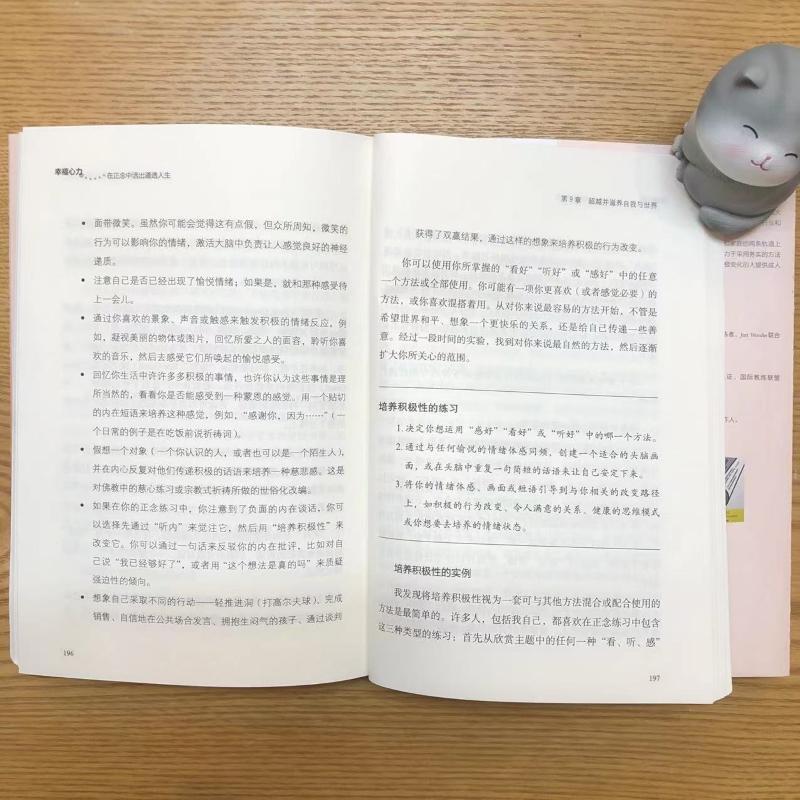 幸福心力
在正念中活出通透人生
• 面带微笑。虽然你可能会觉得这有点假，但众所周知，微笑的
行为可以影响你的情绪，激活大脑中负责让人感觉良好的神经
递质。
• 注意自己是否已经出现了愉悦情绪；如果是，就和那种感受待
上一会儿。
• 通过你喜欢的景象、声音或触感来触发积极的情绪反应，例
如，凝视美丽的物体或图片，回忆所爱之人的面容，聆听你喜
欢的音乐，然后去感受它们所唤起的愉悦感受。
• 回忆你生活中许许多多积极的事情，也许你认为这些事情是理
所当然的，看看你是否能感受到一种蒙恩的感觉。用一个贴切
的内在短语来培养这种感觉，例如，“感谢你，因为……”（一
个日常的例子是在吃饭前说祈祷词）。
• 假想一个对象（一个你认识的人，或者也可以是一个陌生人），
并在内心反复对他们传递积极的话语来培养一种慈悲感。这是
对佛教中的慈心练习或宗教式祈祷所做的世俗化改编。
• 如果在你的正念练习中，你注意到了负面的内在谈话，你可
以选择先通过“听内”来觉注它，然后用“培养积极性”来
改变它。你可以通过一句话来反驳你的内在批评，比如对自
己说“我已经够好了”，或者用“这个想法是真的吗”来质疑
强迫性的倾向。
• 想象自己采取不同的行动——轻推进洞（打高尔夫球）、完成
销售、自信地在公共场合发言、拥抱生闷气的孩子、通过谈判
196
第9章 超越并滋养自我与世界
获得了双赢结果，通过这样的想象来培养积极的行为改变。
你可以使用你所掌握的“看好”“听好”或“感好”中的任意
一个方法或全部使用。你可能有一项你更喜欢（或者感觉必要）的
方法，或你喜欢混搭着用。从对你来说最容易的方法开始，不管是
希望世界和平、想象一个更快乐的关系，还是给自己传递一些善
意。经过一段时间的实验，找到对你来说最自然的方法，然后逐渐
扩大你所关心的范围。
培养积极性的练习
1.决定你想运用“感好”“看好”或“听好”中的哪一个方法。
2.通过与任何愉悦的情绪体感同频，创建一个适合的头脑画
面，或在头脑中重复一句简短的话语来让自己安定下来。
3.将你的情绪体感、画面或短语引导到与你相关的改变路径
上，如积极的行为改变、令人满意的关系、健康的思维模式
或你想要去培养的情绪状态。
培养积极性的实例
我发现将培养积极性视为一套可与其他方法混合或配合使用的
方法是最简单的。许多人，包括我自己，都喜欢在正念练习中包含
这三种类型的练习：首先从欣赏主题中的任何一种“看、听、感”
197
家庭治疗两条轨道上
力于采用务实的方法
极变化的人提供成人
Just Wonder联合
证，国际教练联盟